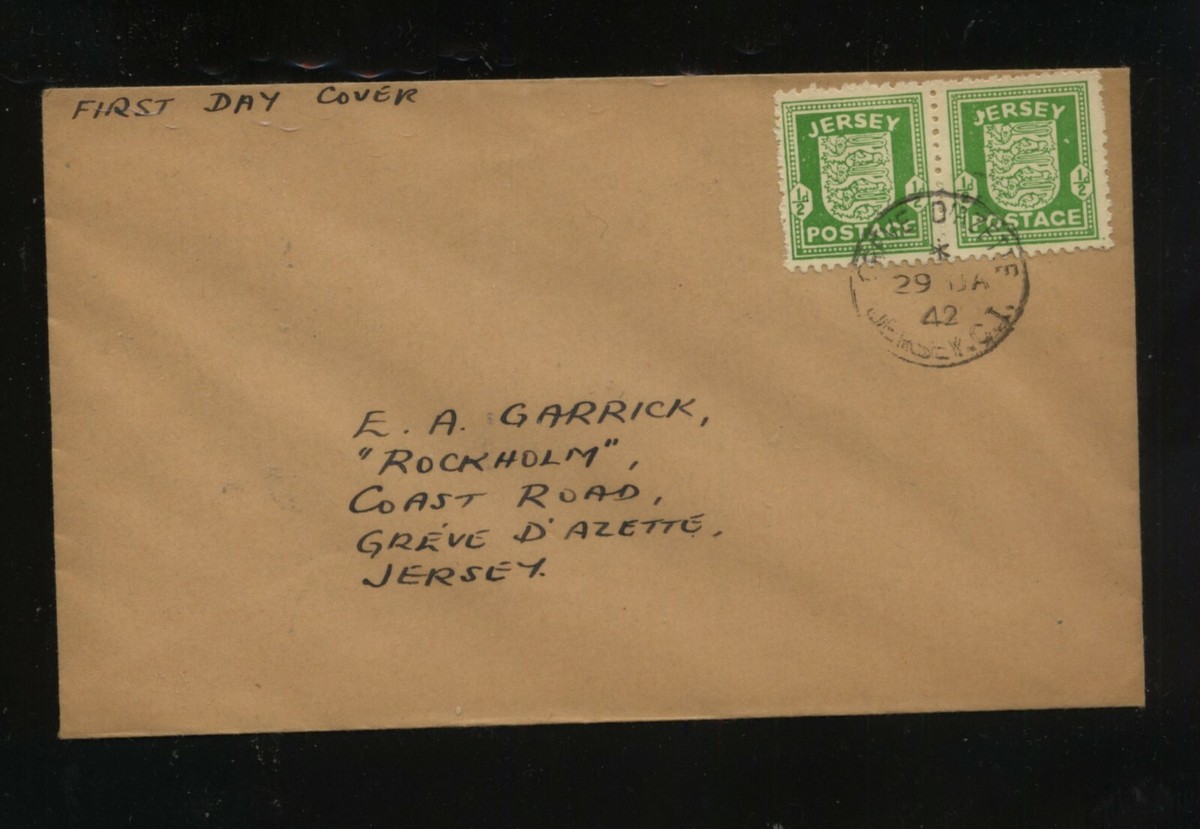 FIRST DAY COVER
JERSEY
½d ½d
POSTAGE
JERSEY
½d ½d
POSTAGE
D'AZETTE
*
29 JA
42
JERSEY. C.I.
E. A. GARRICK,
"ROCKHOLM",
COAST ROAD,
GRÉVE D'AZETTE,
JERSEY.